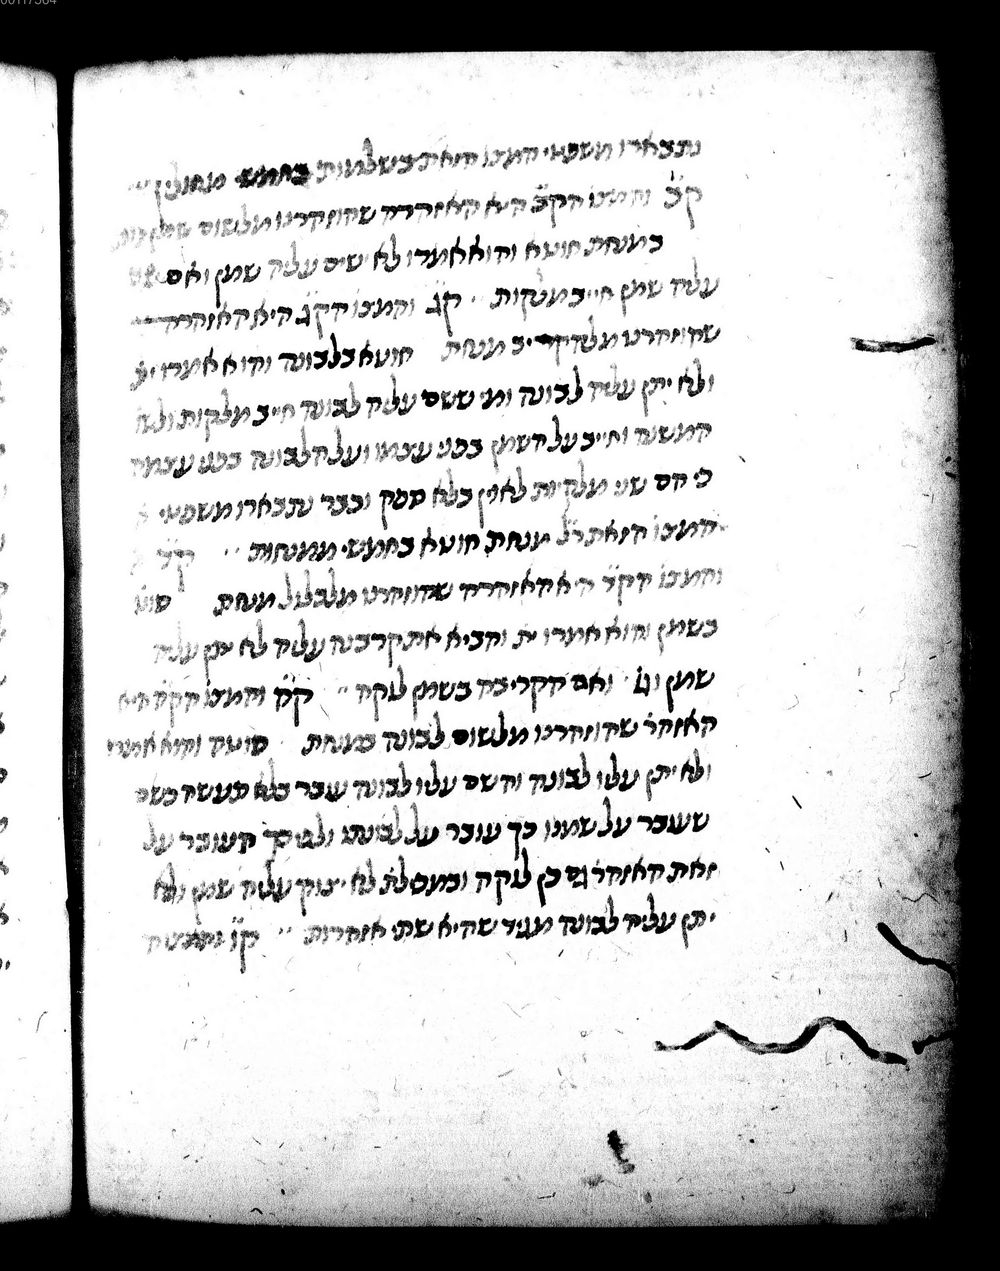 נתבארו משפטי המצו הזאת בשלמות בחמש מחולין
ק״ב והמצו הק״ב היא האזהרה שהוזהרנו מלשום שמן
במנחת חוטא והוא אמרו לא ישים עליה שמן ואם
עליה שמן חייב מלקות ק״ג והמצו הק״ג היא האזהרה
שהוזהרנו מלהקריב מנחת חוטא בלבונה והוא אמרו ית׳
ולא יתן עליה לבונה ומי ששם עליה לבונה חייב מלקות
המשנה וחייב על השמן בפני עצמו ועל הלבונה בפני עצמה
כי הם שני מלקיות לאוין בלא ספק וכבר נתבארו משפטי
המצו הזאת ר״ל מנחת חוטא בחמשי ממנחות ק״ד
והמצו הק״ד היא האזהרה שהוזהרנו מלבלול מנחת סוט׳
בשמן והוא אמרו ית׳ והביא את קרבנה עליה לא יתן עליה
שמן וגו׳ ואם הקריבה בשמן לוקה ק״ה והמצו הק״ה היא
האזהר׳ שהוזהרנו מלשום לבונה במנחת סוטה והוא אמרו
ולא יתן עליו לבונה והשם עליו לבונה עובר בלא תעשה כשם
שעובר על שמנו כך עובר על לבונתו ולפיכך העובר על
זאת האזהר׳ גם כן לוקה ובמכילת׳ לא יצוק עליה שמן ולא
יתן עליה לבונה מגיד שהיא שתי אזהרות ק״ו